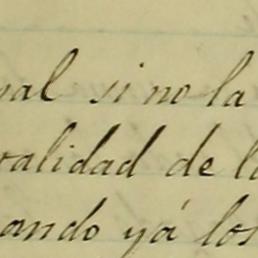 si no la
alidad de l
ando yá los